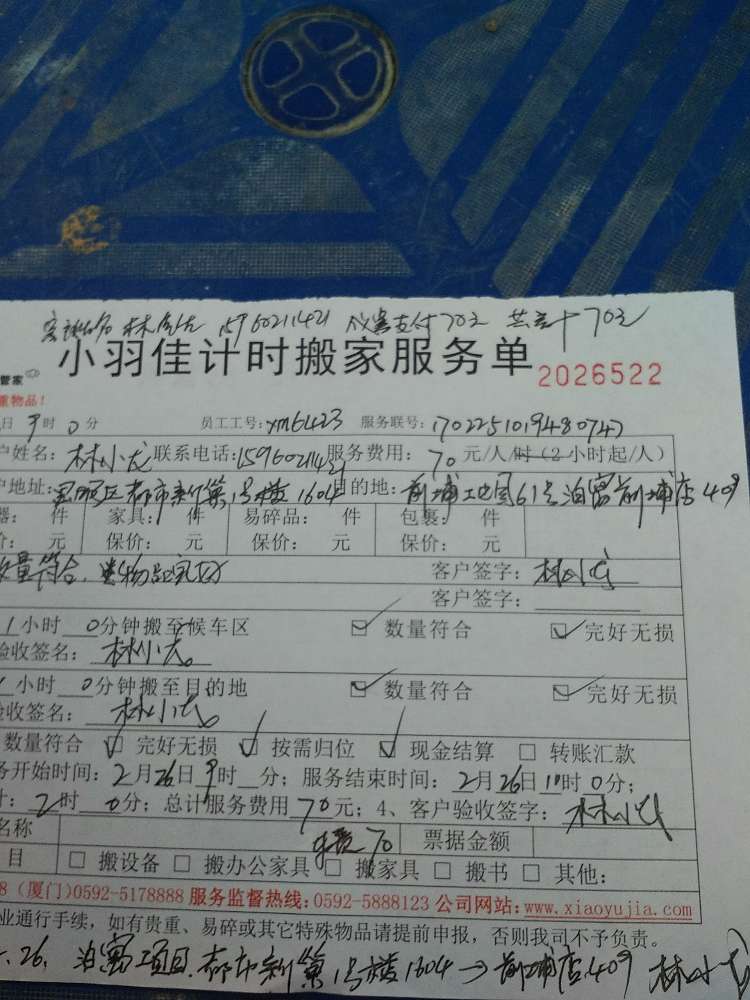 林 15960211421 支付70元 共计70元
小羽佳计时搬家服务单 2026522
管家
重物品!
日 9时 0分 员工工号: xm6423 服务联号: 1702251019480747
户姓名: 林小龙 联系电话: 15960211421 服务费用: 70 元/人/时(2小时起/人)
户地址: 都市新第1号楼1604 目的地: 前埔 61号泊寓前埔店409
器: 件 家具: 件 易碎品: 件 包裹: 件
价: 元 保价: 元 保价: 元 保价: 元
数量符合, 物品完好 客户签字: 林小龙
客户签字:
1小时 0分钟搬至候车区 ☑ 数量符合 ☑ 完好无损
验收签名: 林小龙
1小时 0分钟搬至目的地 ☑ 数量符合 ☑ 完好无损
验收签名: 林小龙
数量符合 ☑ 完好无损 ☑ 按需归位 ☑ 现金结算 □ 转账汇款
务开始时间: 2月26日9时 分; 服务结束时间: 2月26日11时0分;
计: 2时 0分; 总计服务费用 70元; 4、客户验收签字: 林小龙
名称 70 票据金额
目 □ 搬设备 □ 搬办公家具 □ 搬家具 □ 搬书 □ 其他:
8 (厦门)0592-5178888 服务监督热线:0592-5888123 公司网站:www.xiaoyujia.com
业通行手续,如有贵重、易碎或其它特殊物品请提前申报,否则我司不予负责。
.26. 泊寓项目 都市新第1号楼1604→前埔店409 林小龙